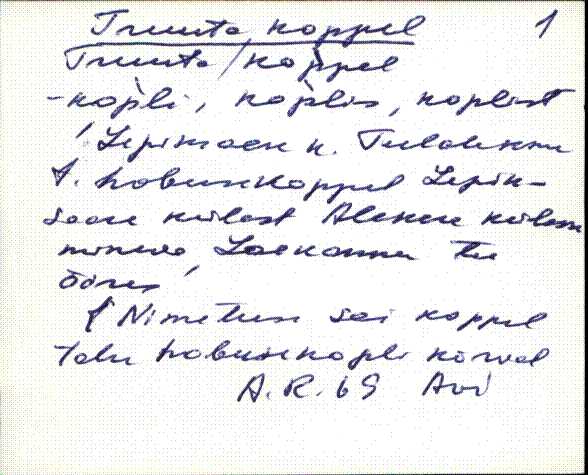 Truuta koppel 1
Truuta/koppel
-kop̀li, kop̀lis, koplist
Lepiksaare k.
t. hobusekoppel Lepik-
saare külast Alekere külasse
mineva, Laekannu tee
ääres
Nimetuse sai koppel
talu hobusekopli kõrval
A.R. 69 Avi